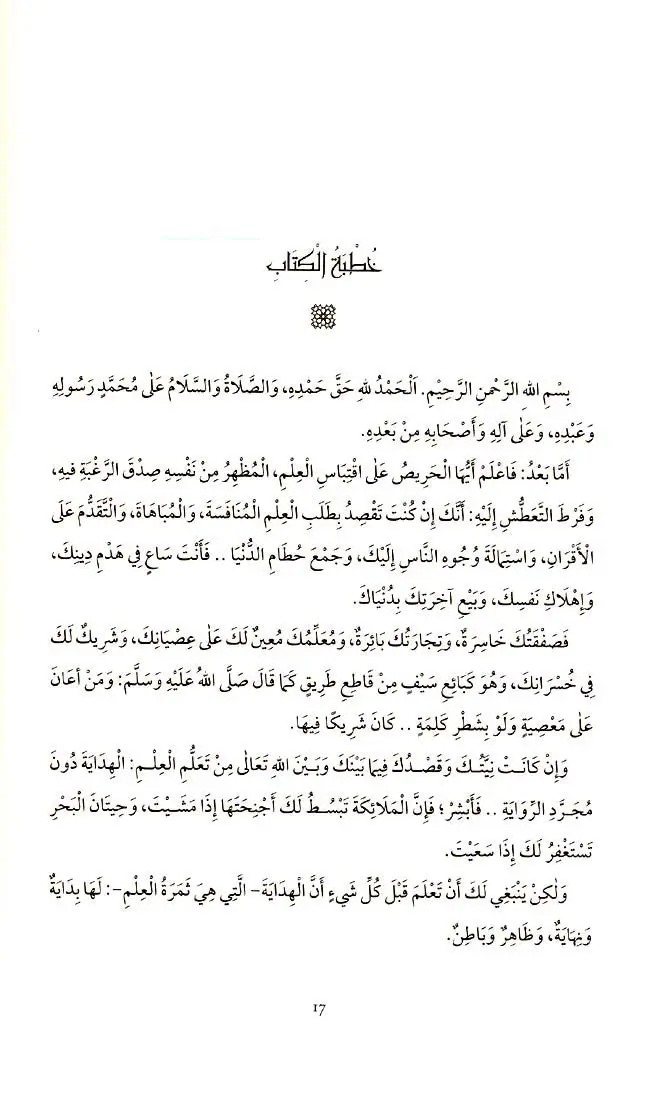 خُطْبَةُ الْكِتَابِ
بِسْمِ اللهِ الرَّحْمنِ الرَّحِيْمِ. اَلْحَمْدُ للهِ حَقَّ حَمْدِهِ، وَالصَّلَاةُ وَالسَّلَامُ عَلٰى مُحَمَّدٍ رَسُولِهِ
وَعَبْدِهِ، وَعَلٰى آلِهِ وَأَصْحَابِهِ مِنْ بَعْدِهِ.
أَمَّا بَعْدُ: فَاعْلَمْ أَيُّهَا الْحَرِيصُ عَلىٰ اقْتِبَاسِ الْعِلْمِ، الْمُظْهِرُ مِنْ نَفْسِهِ صِدْقَ الرَّغْبَةِ فِيهِ،
وَفَرْطَ التَّعَطُّشِ إِلَيْهِ: أَنَّكَ إِنْ كُنْتَ تَقْصِدُ بِطَلَبِ الْعِلْمِ الْمُنَافَسَةَ، وَالْمُبَاهَاةَ، وَالْتَّقَدُّمَ عَلَى
الْأَقْرَانِ، وَاسْتِمَالَةَ وُجُوهِ النَّاسِ إِلَيْكَ، وَجَمْعَ حُطَامِ الدُّنْيَا .. فَأَنْتَ سَاعٍ فِي هَدْمِ دِينِكَ،
وَإِهْلَاكِ نَفسِكَ، وَبَيْعِ آخِرَتِكَ بِدُنْيَاكَ.
فَصَفْقَتُكَ خَاسِرَةٌ، وَتِجَارَتُكَ بَائِرَةٌ، وَمُعَلِّمُكَ مُعِينٌ لَكَ عَلىٰ عِصْيَانِكَ، وَشَرِيكٌ لَكَ
فِي خُسْرَانِكَ، وَهُوَ كَبَائِعِ سَيْفٍ مِنْ قَاطِعِ طَرِيقٍ كَمَا قَالَ صَلَّى اللهُ عَلَيْهِ وَسَلَّمَ: وَمَنْ أَعَانَ
عَلىٰ مَعْصِيَةٍ وَلَوْ بِشَطْرِ كَلِمَةٍ .. كَانَ شَرِيكًا فِيهَا.
وَإِنْ كَانَتْ نِيَّتُكَ وَقَصْدُكَ فِيمَا بَيْنَكَ وَبَيْنَ اللهِ تَعَالٰى مِنْ تَعَلُّمِ الْعِلْمِ: الْهِدَايَةَ دُونَ
مُجَرَّدِ الرِّوَايَةِ .. فَأَبْشِرْ؛ فَإِنَّ الْمَلَائِكَةَ تَبْسُطُ لَكَ أَجْنِحَتَهَا إِذَا مَشَيْتَ، وَحِيتَانَ الْبَحْرِ
تَسْتَغْفِرُ لَكَ إِذَا سَعَيْتَ.
وَلٰكِنْ يَنْبَغِي لَكَ أَنْ تَعْلَمَ قَبْلَ كُلِّ شَيءٍ أَنَّ الْهِدَايَةَ- الَّتِي هِيَ ثَمَرَةُ الْعِلْمِ-: لَهَا بِدَايَةٌ
وَنِهَايَةٌ، وَظَاهِرٌ وَبَاطِنٌ.
17